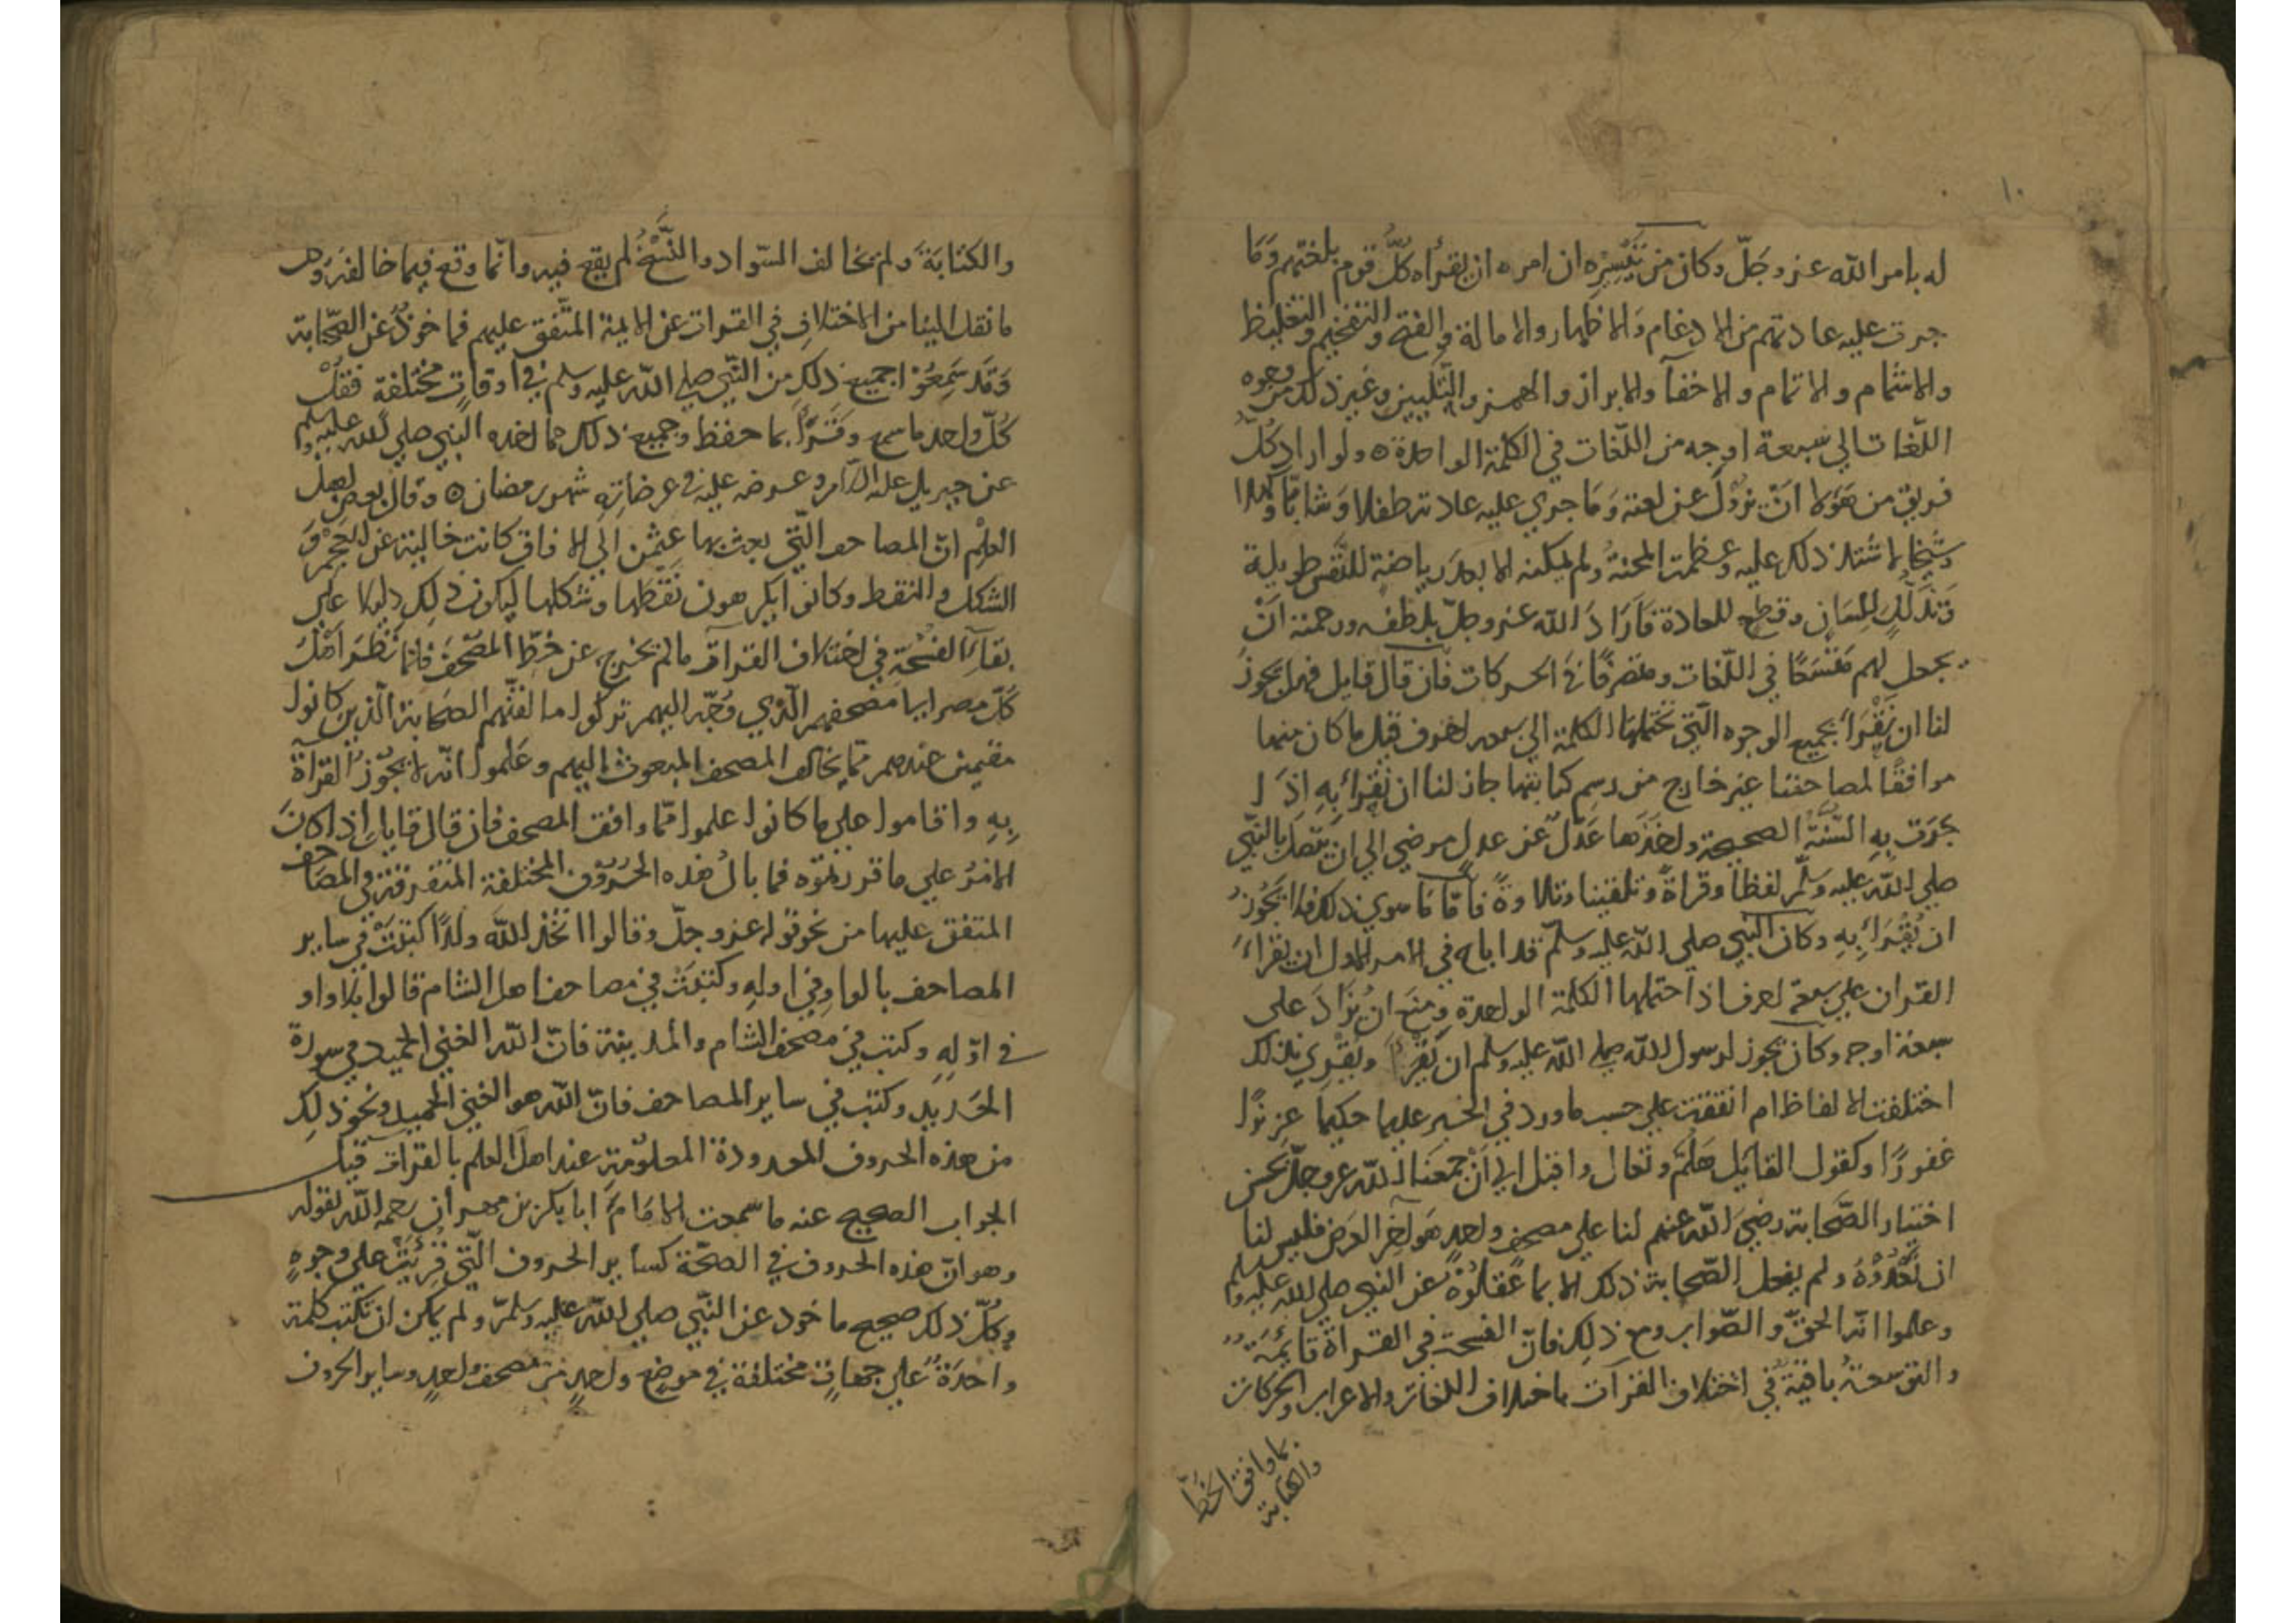 ١٠
له بامر الله عز وجل وكان من تيسيره ان امره ان يقراه كل قوم بلغتهم وما
جرت عليه عادتهم من الادغام والاظهار والامالة والفتح والتفخيم والتغليظ
والاشمام والاتمام والاخفآ والابراز والهمز والتليين وغير ذلك من وجوه
اللغات الي سبعة اوجه من اللغات في الكلمة الواحدة ٥ ولو اراد كل
فريق من هولا ان يزول عن لغته وما جري عليه عادته طفلا وشابا وكهلا
وشيخا لاشتد ذلك عليه وعظمت المحنة ولم يمكنه الا بعد رياضة للنفس طويلة
وتذلل للسان وقطع للعادة فاراد الله عز وجل بلطفه ورحمته ان
يجعل لهم متسعا في اللغات ومتصرفا في الحركات فان قال قايل فهل يجوز
لنا ان نقرا بجميع الوجوه التي تحتملها الكلمة الي سبعه احرف قيل ما كان منها
موافقا لمصاحفنا غير خارج من رسم كتابتها جاز لنا ان نقرا به اذا
جرت به السنة الصحيحة واخذها عدل عن عدل مرضي الي ان يتصل بالنبي
صلي الله عليه وسلم لفظا وقراة وتلقينا وتلاوة فاما ما سوي ذلك فلا يجوز
ان يقرا به وكان النبي صلي الله عليه وسلم قد اباح في الامر الاول ان يقرا
القران علي سبعة احرف اذا احتملها الكلمة الواحدة ومنع ان يزاد على
سبعة اوجه وكان يجوز لرسول الله صلي الله عليه وسلم ان يقرا ويقري بذلك
اختلفت الالفاظ ام اتفقت علي حسب ما ورد في الخبر عليما حكيما عزيزا
غفورا وكقول القايل هلم وتعال واقبل الي ان جمعنا الله عز وجل بحسن
اختيار الصحابة رضي الله عنهم لنا علي مصحف واحد هو اخر العرض فليس لنا
ان نعدوه ولم يفعل الصحابة ذلك الا بما عقلوه عن النبي صلي الله عليه وسلم
وعلموا انه الحق والصواب ومع ذلك فان الفسحة في القراة قايمة
والتوسعة باقية في اختلاف القرآت باختلاف اللغات والاعراب والحركات
بما وافق الخط
والكتابة
والكتابة ولم يخالف السواد والنسخ لم يقع فيه وانما وقع فيما خالفه وهو
ما نقل الينا من الاختلاف في القرات عن الايمة المتفق عليهم فماخوذ عن الصحابة
وقد سمعوا جميع ذلك من النبي صلي الله عليه وسلم في اوقات مختلفة فنقل
كل واحد ما سمع وقرا بما حفظ وجميع ذلك مما اخذه النبي صلي الله عليه وسلم
عن جبريل عليه السلم وعرضه عليه في عرضاته شهر رمضان ٥ وقال بعض اهل
العلم ان المصاحف التي بعث بها عثمن الي الافاق كانت خالية عن العجم و
الشكل والنقط وكانوا يكرهون نقطها وشكلها ليكون ذلك دليلا علي
بقاء الفسحة في اختلاف القراة ما لم يخرج عن خط المصحف فلما نظر اهل
كل مصر الي مصحفهم الذي وجه اليهم تركوا ما لقنهم الصحابة الذين كانوا
مقيمين عندهم مما يخالف المصحف المبعوث اليهم وعلموا انه لا يجوز القراة
به واقاموا علي ما كانوا علموا مما وافق المصحف فان قال قايل اذا كان
الامر علي ما قررتموه فما بال هذه الحروف المختلفة المتفرقة في المصاحف
المتفق عليها من نحو قوله عز وجل وقالوا اتخذ الله ولدا كتبت في ساير
المصاحف بالواو في اوله وكتبت في مصاحف اهل الشام قالوا بلا واو
في اوله وكتب في مصحف الشام والمدينة فان الله الغني الحميد في سورة
الحديد وكتب في ساير المصاحف فان الله هو الغني الحميد ونحو ذلك
من هذه الحروف المعدودة المعلومة عند اهل العلم بالقرات قيل
الجواب الصحيح عنه ما سمعت الامام ابا بكر بن مهران رحمه الله يقوله
وهو ان هذه الحروف في الصحة كساير الحروف التي قريت علي وجوه
وكل ذلك صحيح ماخوذ عن النبي صلي الله عليه وسلم ولم يمكن ان تكتب كلمة
واحدة علي جهات مختلفة في موضع واحد من مصحف واحد وساير الحروف